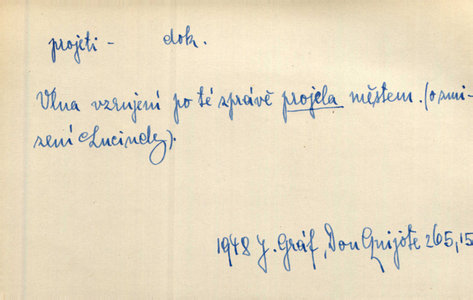 projeti - dok.
Vlna vzrušení po té zprávě projela městem. (o zmi-
zení Lucindy).
1948 J. Gráf, Don Quijote 265,15